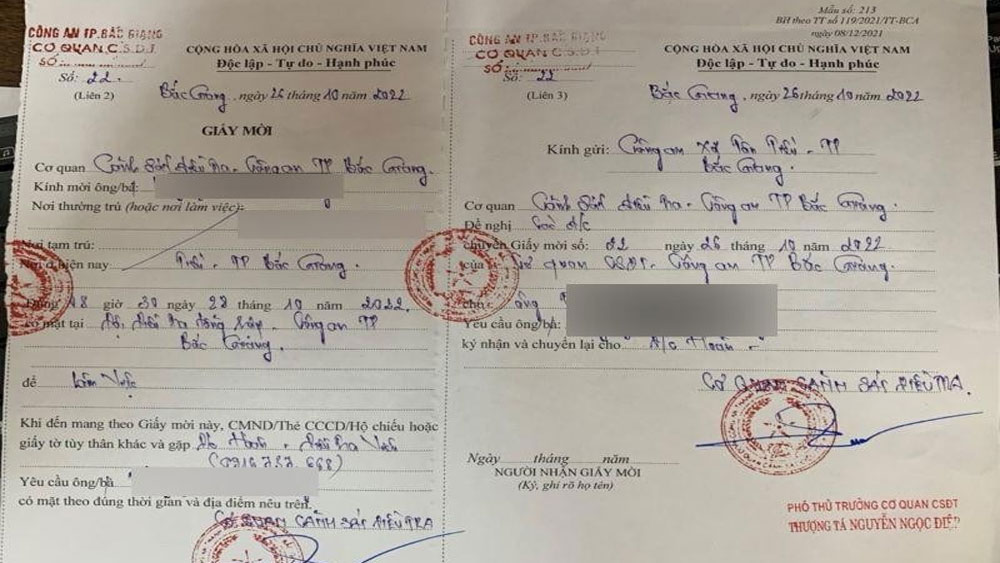 CÔNG AN TP.BẮC GIANG
CƠ QUAN C.S.D.T
SỐ
Số: 22.
(Liên 2)
CỘNG HÒA XÃ HỘI CHỦ NGHĨA VIỆT NAM
Độc lập - Tự do - Hạnh phúc
Bắc Giang, ngày 26 tháng 10 năm 2022
GIẤY MỜI
Cơ quan Cảnh sát điều tra - Công an TP Bắc Giang.
Kính mời ông/bà:
Nơi thường trú (hoặc nơi làm việc):
Nơi tạm trú:
Nơi ở hiện nay TP Bắc Giang.
giờ 30 ngày 28 tháng 10 năm 2022
có mặt tại Công an TP
Bắc Giang.
để Làm việc
Khi đến mang theo Giấy mời này, CMND/Thẻ CCCD/Hộ chiếu hoặc
giấy tờ tùy thân khác và gặp Điều tra viên
(0916.757.668)
Yêu cầu ông/bà
có mặt theo đúng thời gian và địa điểm nêu trên.
CƠ QUAN CẢNH SÁT ĐIỀU TRA
Mẫu số: 213
BH theo TT số 119/2021/TT-BCA
ngày 08/12/2021
CÔNG AN TP.BẮC GIANG
CƠ QUAN C.S.D.T
SỐ
Số: 22
(Liên 3)
CỘNG HÒA XÃ HỘI CHỦ NGHĨA VIỆT NAM
Độc lập - Tự do - Hạnh phúc
Bắc Giang, ngày 26 tháng 10 năm 2022
Kính gửi: Công an xã - TP
Bắc Giang.
Cơ quan Cảnh sát điều tra - Công an TP Bắc Giang.
Đề nghị các đ/c
chuyển Giấy mời số: 22 ngày 26 tháng 10 năm 2022
của Cơ quan CSĐT - Công an TP Bắc Giang.
cho: ông
Yêu cầu ông/bà:
ký nhận và chuyển lại cho đ/c Hoàn
CƠ QUAN CẢNH SÁT ĐIỀU TRA.
Ngày tháng năm
NGƯỜI NHẬN GIẤY MỜI
(Ký, ghi rõ họ tên)
PHÓ THỦ TRƯỞNG CƠ QUAN CSĐT
THƯỢNG TÁ NGUYỄN NGỌC ĐIỆP